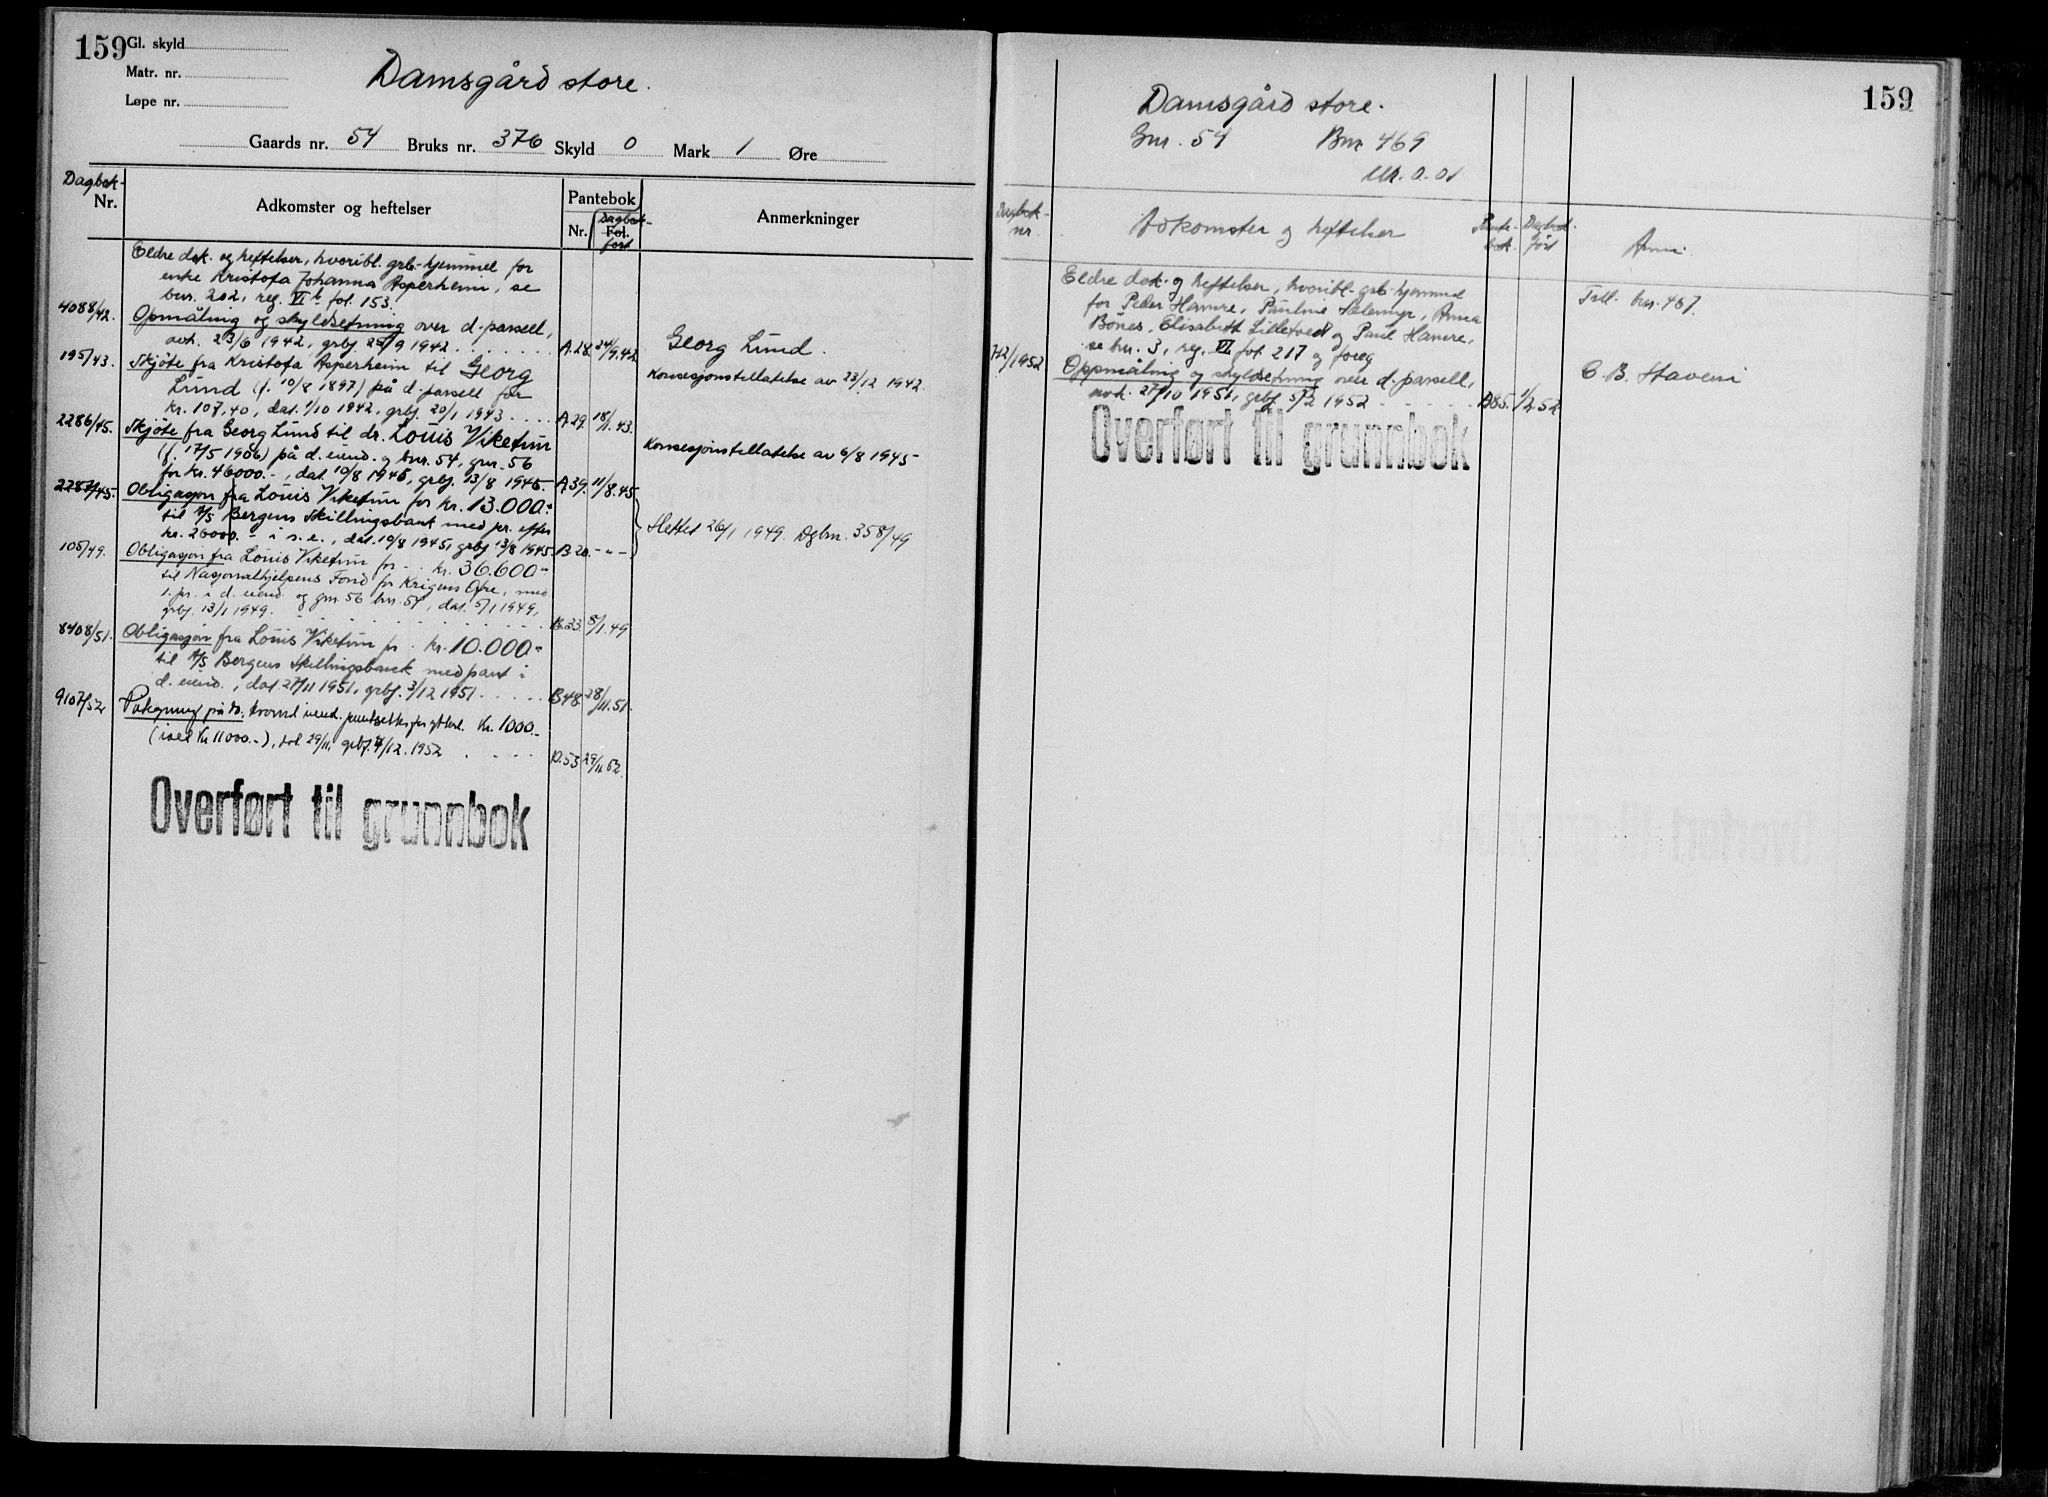 159
Gl. skyld
Matr. nr.
Løpe nr.
Damsgård store.
Gaards nr. 54 Bruks nr. 376 Skyld 0 Mark 1 Øre
Dagbok-
Nr.
Adkomster og heftelser
Pantebok
Nr.
Dagbok-
Fol.
ført
Anmerkninger
Eldre dok. og heftelser, hvoribl. grb.-hjemmel for
enke Kristofa Johanna Asperheim, se
bnr. 202, reg. VI b fol. 153.
4088/42. Opmåling og skyldsetning over d. parsell,
avh. 23/6 1942, grbj. 25/9 1942 A.28. 24/9.42 Georg Lund.
195/43. Skjøte fra Kristofa Asperheim til Georg
Lund (f. 10/8 1897) på d. parsell for Konsesjonstillatelse av 23/12 1942.
kr. 107,40, dat. 1/10 1942, grbj. 20/1 1943 A.29. 18/1.43.
2286/45. Skjøte fra Georg Lund til dr. Louis Viketun
(f. 17/5 1906) på d. eiend. og bnr. 54, gnr. 56 Konsesjonstillatelse av 6/8 1945
for kr. 46000.-, dat. 10/8 1945, grbj. 13/8 1945. A.39. 11/8.45
2287/45. Obligasjon fra Louis Viketun for kr. 13.000.-
til A/S Bergens Skillingsbank med pr. efter Slettet 26/1 1949. Dgbnr. 358/49
kr. 26000.- i s. e., dat. 10/8 1945, grbj. 13/8 1945. B.20. - " -
105/49. Obligasjon fra Louis Viketun for kr. 36.600-
til Nasjonalhjelpens Fond for Krigens Ofre, med
1. pr. i d. eiend. og gnr. 56 bnr. 54, dat. 5/1 1949,
grbj. 13/1 1949. B.33. 8/1.49
8408/51. Obligasjon fra Louis Viketun for kr. 10.000-
til A/S Bergens Skillingsbank med pant i
d. eiend., dat. 27/11 1951, grbj. 3/12 1951 B48. 28/11.51.
9107/52 Påtegning på Kr. 1000.-
Kr 11000.-), 29/11, grbj. 4/12. 1952 53 29/11 52.
Overført til grunnbok
159
Damsgård store.
Gnr. 54 Bnr 469
M. 0.01
Dagbok-
nr.
Adkomster og heftelser
Pante-
bok.
Dagbok.
ført
Anm.
Eldre dok. og heftelser, hvoribl. grb.-hjemmel
for Peder Hamre, Pauline Sælemyr, Anna Till. bnr. 467.
Bønes, Elisabeth Lilletvedt og Paul Hamre,
se bnr. 3, reg. VI fol. 217 og foreg
712/1952 Oppmåling og skyldsetning over d. parsell, C. B. Staveni
avh. 27/10 1951, grbj. 5/2 1952 B85. 1/2.52.
Overført til grunnbok